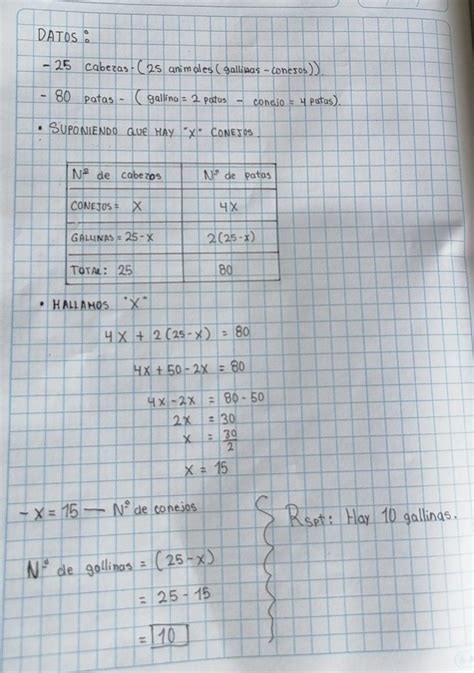 DATOS:
- 25 cabezas - (25 animales (gallinas - conejos)).
- 80 patas - ( gallina = 2 patas - conejo = 4 patas).
• SUPONIENDO QUE HAY "X" CONEJOS.
Nº de cabezas Nº de patas
CONEJOS = X 4X
GALLINAS = 25-X 2(25-X)
TOTAL: 25 80
• HALLAMOS "X"
4X + 2(25-X) = 80
4X + 50 - 2X = 80
4X - 2X = 80 - 50
2X = 30
X = 30/2
X = 15
- X = 15 — Nº de conejos
Nº de gallinas = (25-X)
= 25 - 15
= 10
Rspt: Hay 10 gallinas.